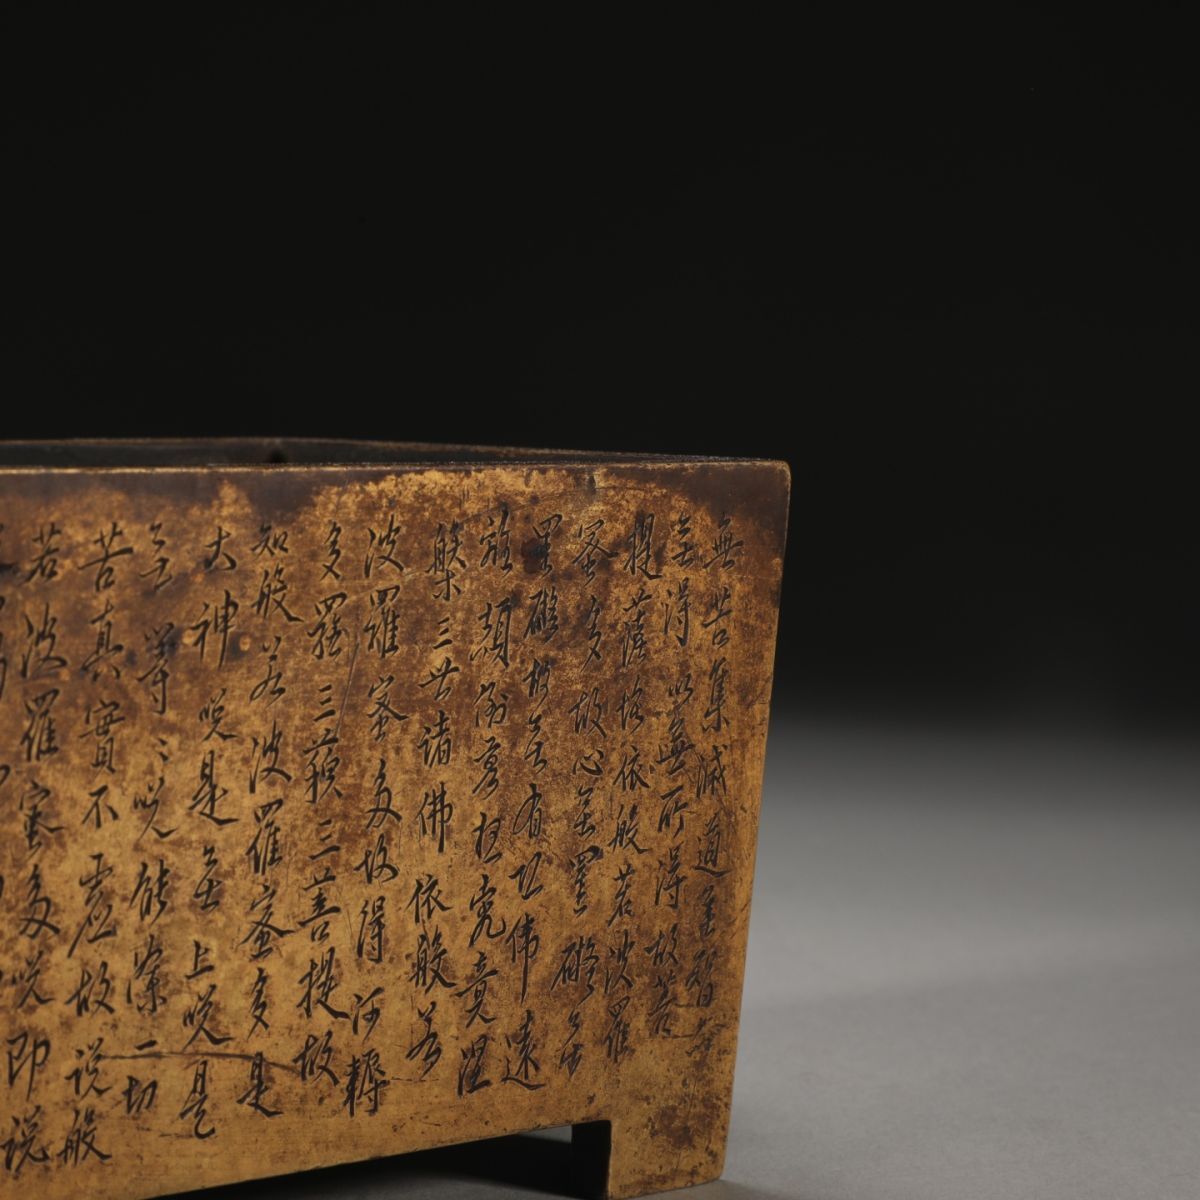 無苦集滅道無智亦
無得以無所得故菩
提薩埵依般若波羅
蜜多故心無罣礙無
罣礙故無有恐怖遠
離顛倒夢想究竟涅
槃三世諸佛依般若
波羅蜜多故得阿耨
多羅三藐三菩提故
知般若波羅蜜多是
大神咒是無上咒是
無等々咒能除一切
苦真實不虛故說般
若波羅蜜多咒即說